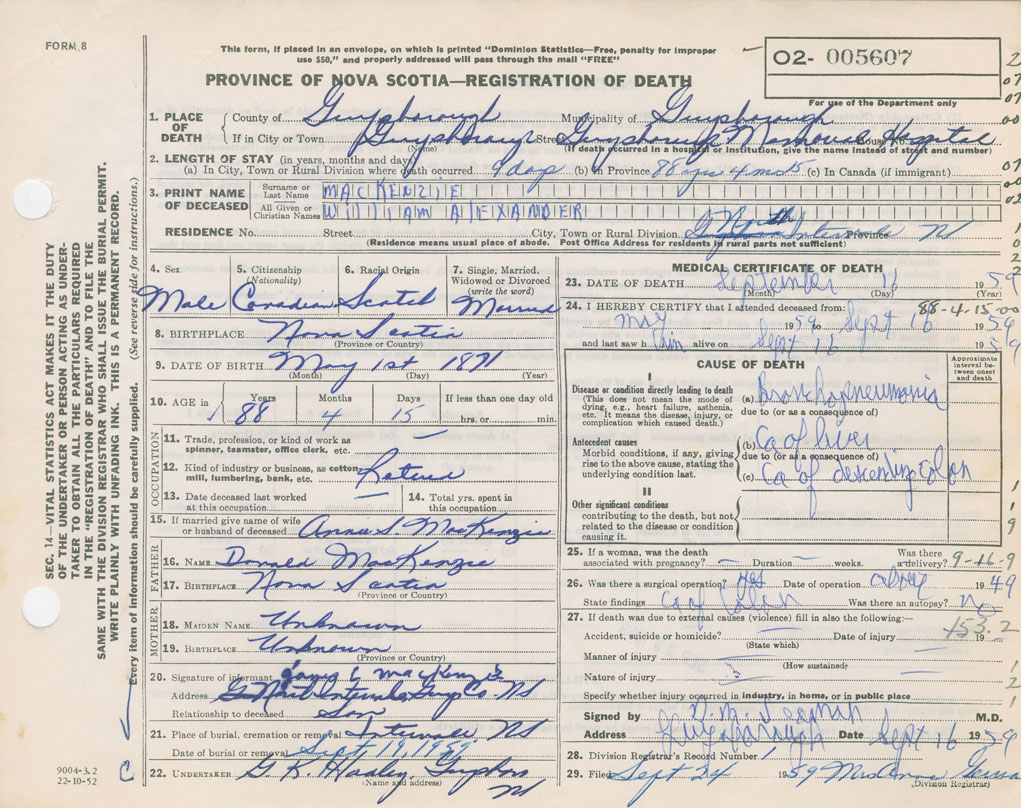 FORM 8
This form, if placed in an envelope, on which is printed "Dominion Statistics—Free, penalty for improper
use $50," and properly addressed will pass through the mail "FREE"
PROVINCE OF NOVA SCOTIA—REGISTRATION OF DEATH
O2- 005607
For use of the Department only
SEC. 14—VITAL STATISTICS ACT MAKES IT THE DUTY
OF THE UNDERTAKER OR PERSON ACTING AS UNDER-
TAKER TO OBTAIN ALL THE PARTICULARS REQUIRED
IN THE "REGISTRATION OF DEATH" AND TO FILE THE
SAME WITH THE DIVISION REGISTRAR WHO SHALL ISSUE THE BURIAL PERMIT.
WRITE PLAINLY WITH UNFADING INK. THIS IS A PERMANENT RECORD.
Every item of information should be carefully supplied. (See reverse side for instructions.)
1. PLACE OF DEATH County of Guysborough Municipality of Guysborough
If in City or Town Guysborough Street Guysborough Memorial Hospital House No.
(Name) (If death occurred in a hospital or institution, give the name instead of street and number)
2. LENGTH OF STAY (in years, months and days)
(a) In City, Town or Rural Division where death occurred 9 days (b) in Province 88 yrs 4 mos 15 (c) In Canada (if immigrant)
3. PRINT NAME OF DECEASED Surname or Last Name MACKENZIE
All Given or Christian Names WILLIAM ALEXANDER
RESIDENCE No. Street City, Town or Rural Division North Intervale Province NS
(Residence means usual place of abode. Post Office Address for residents in rural parts not sufficient)
4. Sex 5. Citizenship (Nationality) 6. Racial Origin 7. Single, Married, Widowed or Divorced (write the word)
Male Canadian Scotch Married
8. BIRTHPLACE Nova Scotia
(Province or Country)
9. DATE OF BIRTH May 1st 1871
(Month) (Day) (Year)
10. AGE in Years Months Days If less than one day old
88 4 15 hrs. or min.
OCCUPATION
11. Trade, profession, or kind of work as spinner, teamster, office clerk, etc. —
12. Kind of industry or business, as cotton mill, lumbering, bank, etc. Retired
13. Date deceased last worked at this occupation — 14. Total yrs. spent in this occupation
15. If married give name of wife or husband of deceased Annie S. MacKenzie
FATHER
16. NAME Donald MacKenzie
17. BIRTHPLACE Nova Scotia
(Province or Country)
MOTHER
18. MAIDEN NAME Unknown
19. BIRTHPLACE Unknown
(Province or Country)
20. Signature of informant MacKenzie
Address Intervale Guy Co. NS
Relationship to deceased Son
21. Place of burial, cremation or removal Intervale, NS
Date of burial or removal Sept 19, 1959
22. UNDERTAKER G. K. Hadley, NS
(Name and address)
9004-3.2
22-10-52
MEDICAL CERTIFICATE OF DEATH
23. DATE OF DEATH September 16 1959
(Month) (Day) (Year)
88-4-15-00
24. I HEREBY CERTIFY that I attended deceased from:
May 1959 to Sept 16 1959
and last saw him alive on Sept 16 1959
CAUSE OF DEATH
Approximate interval between onset and death
I
Disease or condition directly leading to death
(This does not mean the mode of dying, e.g., heart failure, asthenia, etc. It means the disease, injury, or complication which caused death.)
(a) Bronchopneumonia
due to (or as a consequence of)
Antecedent causes
Morbid conditions, if any, giving rise to the above cause, stating the underlying condition last.
(b) Ca of liver
due to (or as a consequence of)
(c) Ca of descending colon
II
Other significant conditions
contributing to the death, but not related to the disease or condition causing it.
25. If a woman, was the death associated with pregnancy? — Duration — weeks. Was there a delivery?
9-16-9
26. Was there a surgical operation? Yes Date of operation 1949
State findings Ca of Colon Was there an autopsy? No
27. If death was due to external causes (violence) fill in also the following:—
153.2
Accident, suicide or homicide? Date of injury 19
(State which)
Manner of injury
(How sustained)
Nature of injury
Specify whether injury occurred in industry, in home, or in public place
Signed by M.D.
Address Guysborough Date Sept 16 1959
28. Division Registrar's Record Number
29. Filed Sept 24 1959
(Division Registrar)